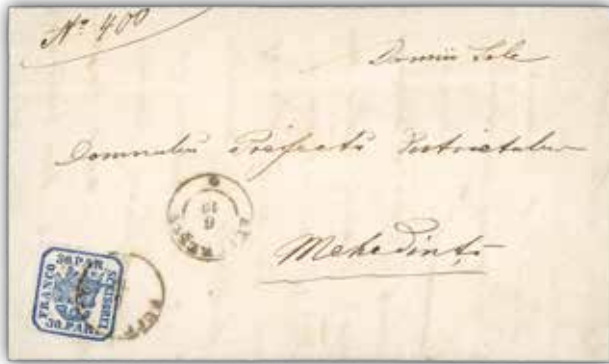 No 400
Domnii Sale
Domnului Prefectu Districtului
Mehedinți
6
30 PAR.
FRANCO SCRISOREI
30 PAR.